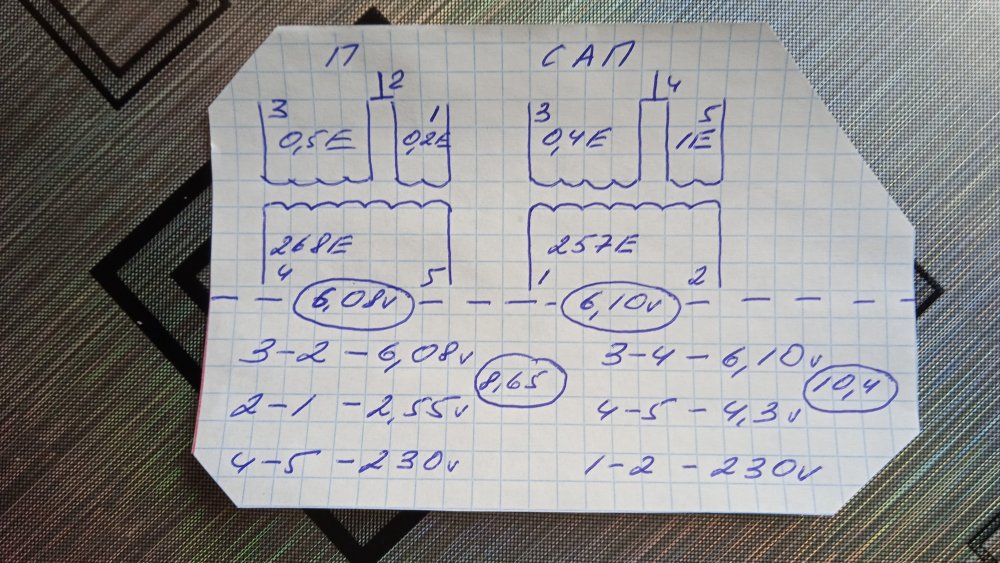 П САП
2 4
3 1 3 5
0,5E 0,2E 0,4E 1E
268E 257E
4 5 1 2
6,08v 6,10v
3-2-6,08v 3-4-6,10v
8,65 10,4
2-1-2,55v 4-5-4,3v
4-5-230v 1-2-230v